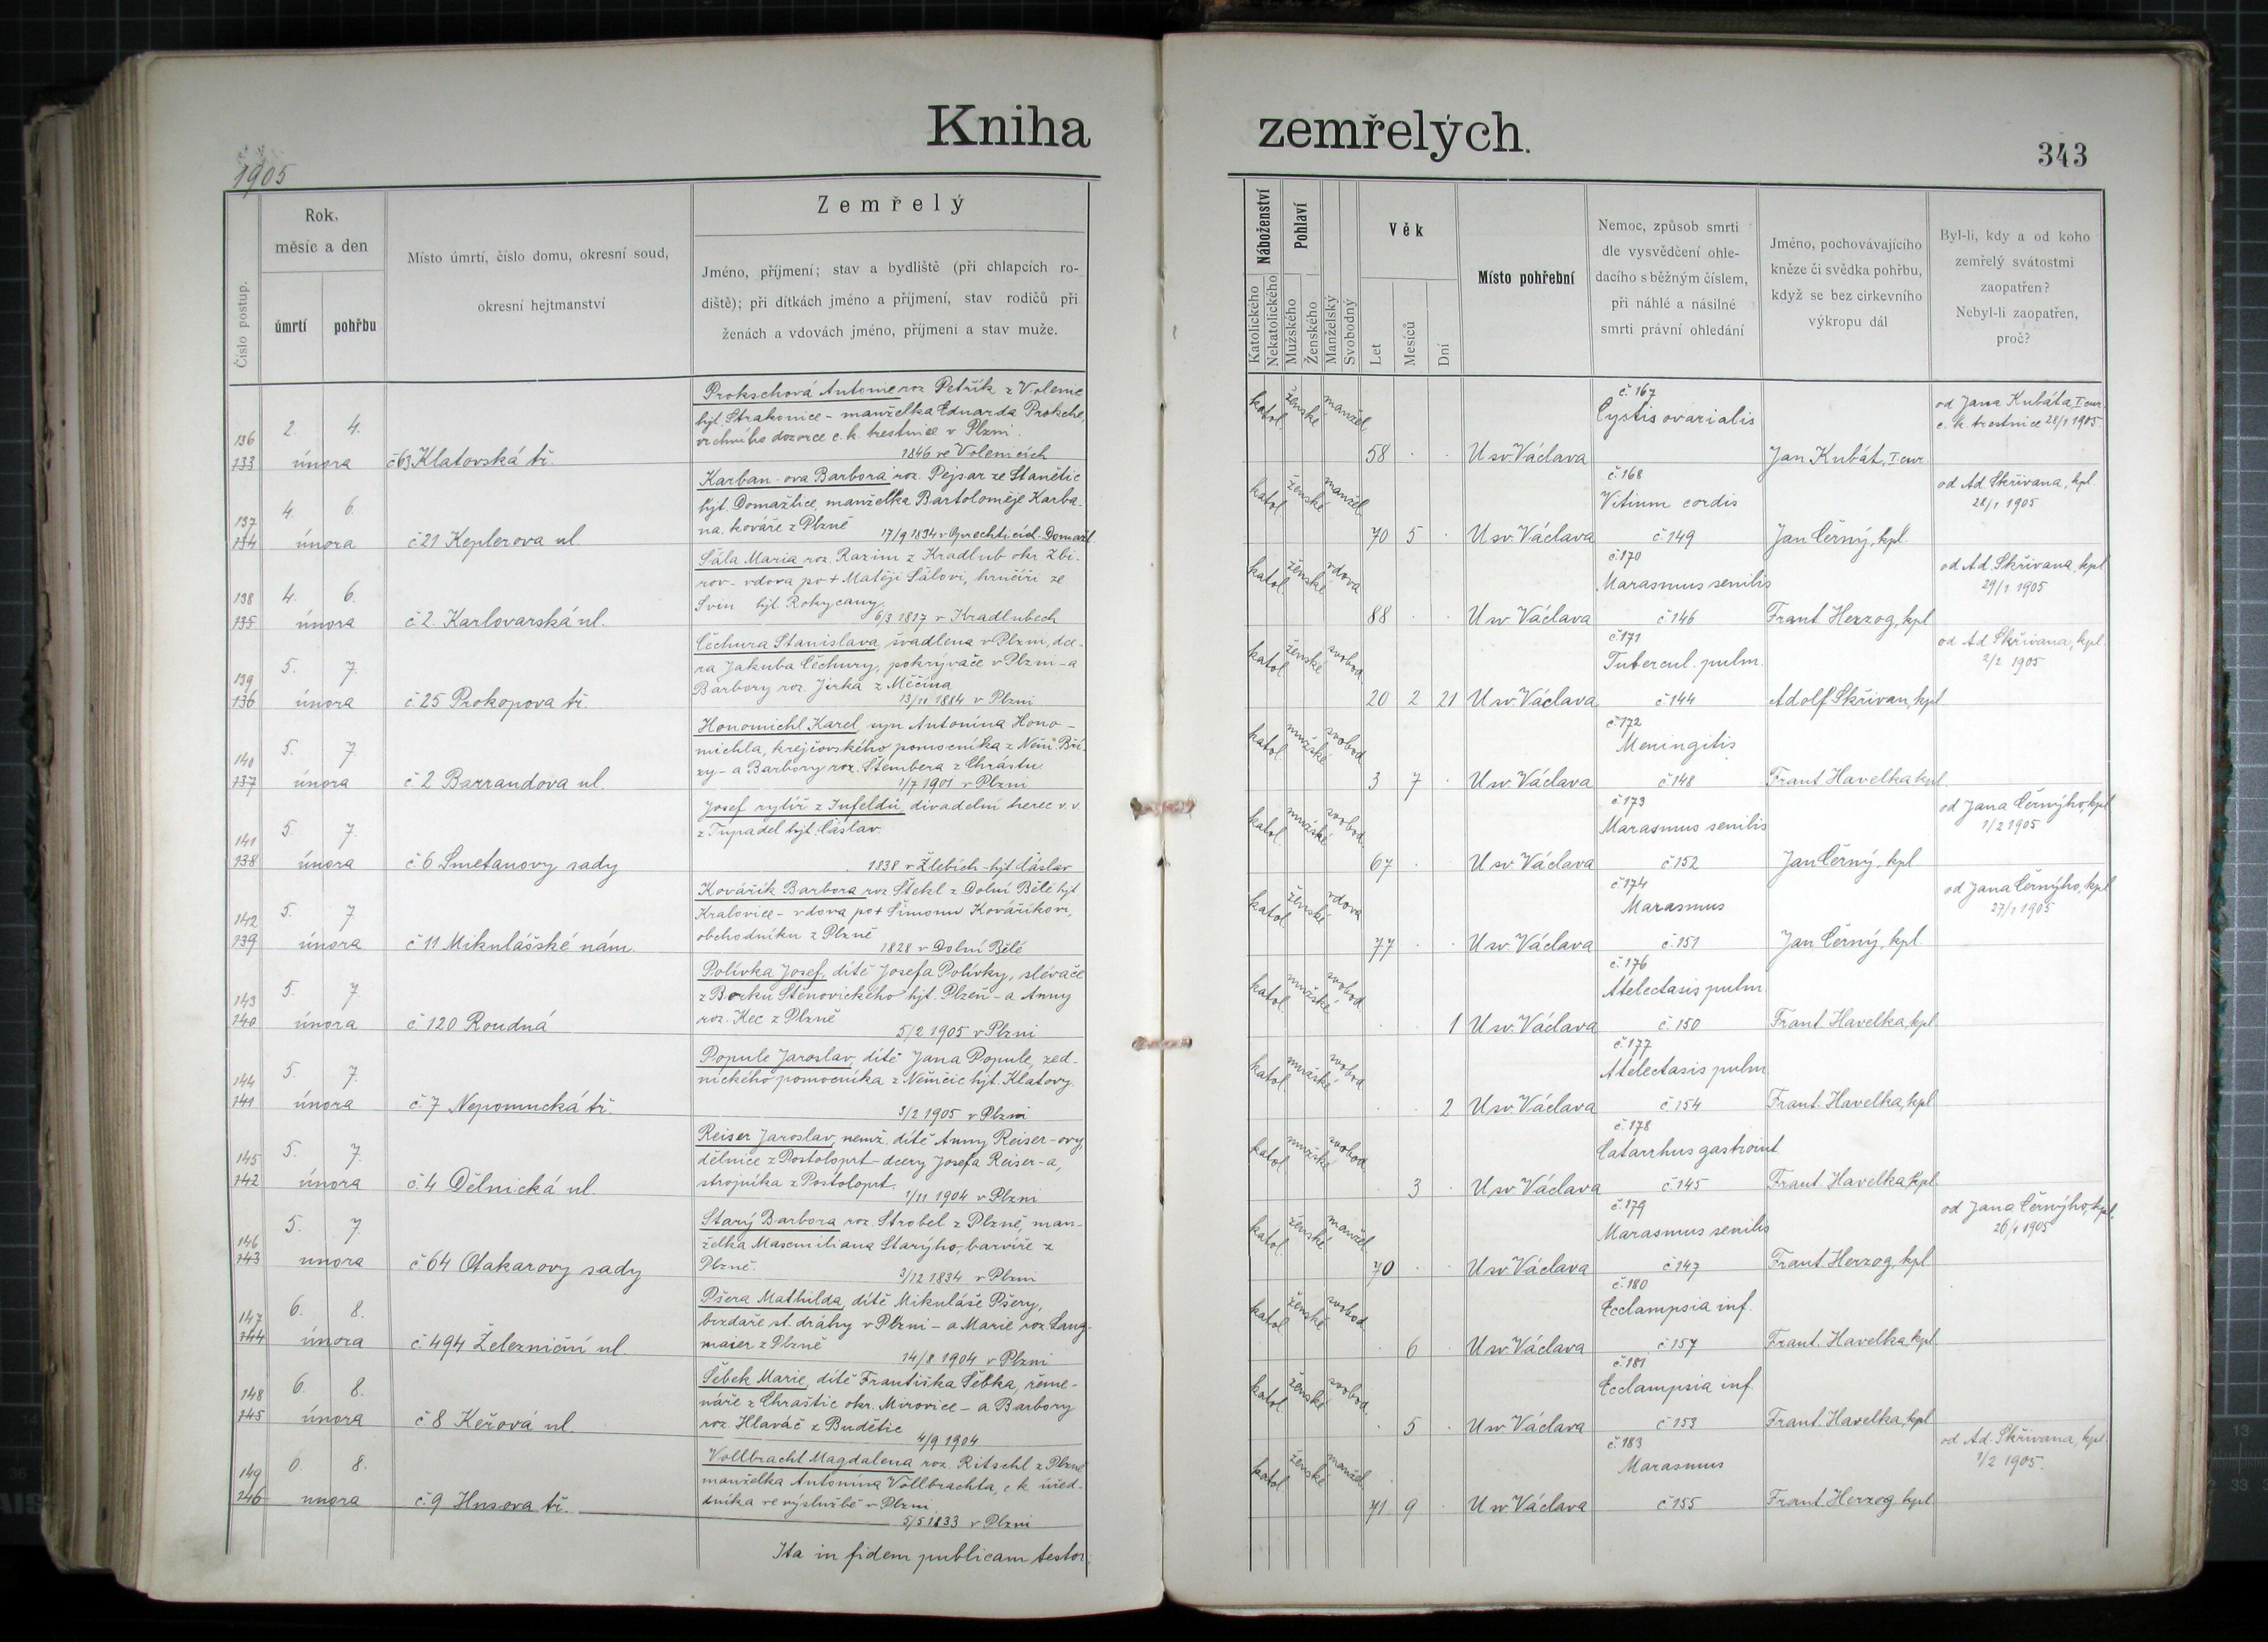 Kniha zemřelých.
343
1905
Číslo postup.
Rok,
měsíc a den
úmrtí
pohřbu
Místo úmrtí, číslo domu, okresní soud,
okresní hejtmanství
Zemřelý
Jméno, příjmení; stav a bydliště (při chlapcích ro-
diště); při dítkách jméno a příjmení, stav rodičů při
ženách a vdovách jméno, příjmeni a stav muže.
Náboženství
Katolického
Nekatolického
Pohlaví
Mužského
Ženského
Manželský
Svobodný
Věk
Let
Mesiců
Dní
Místo pohřební
Nemoc, způsob smrti
dle vysvědčení ohle-
dacího s běžným číslem,
při náhlé a násilné
smrti právní ohledání
Jméno, pochovávajícího
kněze či svědka pohřbu,
když se bez církevního
výkropu dál
Byl-li, kdy a od koho
zemřelý svátostmi
zaopatřen?
Nebyl-li zaopatřen,
proč?
136
133
2 4.
února
č 63 Klatovská tř.
Prokschová Antonie roz. Petřík z Volenic
hjt. Strakonice - manželka Eduarda Prokche,
vrchního dozorce c. k. trestnice v Plzni.
1846 ve Volenicích
katol. ženské manžel.
58
U sv. Václava
č. 167
Cystis ovarialis
Jan Kubát, I cur.
od Jana Kubáta, I cur.
c. k. trestnice 28/1 1905
137
134
4. 6.
února
č 21 Keplerova ul.
Karban-ova Barbora roz. Pejsar ze Stanětic
hjt. Domažlice, manželka Bartoloměje Karba-
na, kováře z Plzně
17/9 1834
katol. ženské manžel.
70 5
U sv. Václava
č. 168
Vitium cordis
č 149
Jan Černý, kpl.
od Ad. Skřivana, kpl
28/1 1905
138
135
4. 6.
února
č. 2. Karlovarská ul.
Šála Maria roz. Razim z Kradlub okr. Zbi-
rov - vdova po + Matěji Šálovi, hrnčíři ze
Svin hjt. Rokycany
6/3 1817 v Kradlubech
katol. ženské vdova
88
U sv. Václava
č 170
Marasmus senilis
č 146
Frant. Herzog, kpl
od Ad. Skřivana, kpl
29/1 1905
139
136
5. 7.
února
č. 25 Prokopova tř.
Čechura Stanislava, švadlena v Plzni, dce-
ra Jakuba Čechury, pokrývače v Plzni - a
Barbory roz. Jirka z Měčína
13/11 1884 v Plzni
katol. ženské svobod.
20 2 21
U sv. Václava
č 171
Tubercul. pulm.
č 144
Adolf Skřivan, kpl
od Ad. Skřivana, kpl.
2/2 1905
140
137
5. 7.
února
č. 2 Barrandova ul.
Honomichl Karel, syn Antonína Hono-
michla, krejčovského pomocníka z Něm. Bří-
zy - a Barbory roz. Štembera z Chrástu
1/7 1901 v Plzni
katol. mužské svobod.
3 7
U sv. Václava
č 172
Meningitis
č 148
Frant. Havelka kpl.
141
138
5. 7.
února
č 6 Smetanovy sady
Josef rytíř z Infeldů, divadelní herec v. v.
z Tupadel hjt. Čáslav.
1838 v Žlebích - hjt. Čáslav
katol. mužské svobod.
67
U sv. Václava
č 173
Marasmus senilis
č 152
Jan Černý, kpl
od Jana Černýho, kpl
1/2 1905
142
139
5. 7
února
č 11 Mikulášské nám.
Kovářík Barbora roz. Štekl z Dolní Bělé hjt
Kralovice - vdova po + Šimonu Kováříkovi,
obchodníku z Plzně
1828 v Dolní Bělé
katol. ženské vdova
77
U sv. Václava
č 174
Marasmus
č. 151
Jan Černý, kpl
od Jana Černýho, kpl
27/1 1905
143
140
5. 7
února
č 120 Roudná
Polívka Josef, dítě Josefa Polívky, slévače
z Borku Štěnovického hjt. Plzeň - a Anny
roz. Kec z Plzně
5/2 1905 v Plzni
katol. mužské svobod.
1
U sv. Václava
č. 176
Atelectasis pulm.
č. 150
Frant. Havelka, kpl.
144
141
5. 7.
února
č. 7 Nepomucká tř.
Popule Jaroslav, dítě Jana Popule, zed-
nického pomocníka z Němčic hjt. Klatovy.
3/2 1905 v Plzni
katol. mužské svobod.
2
U sv. Václava
č. 177
Atelectasis pulm
č 154
Frant. Havelka, kpl
145
142
5. 7.
února
č. 4 Dělnická ul.
Reiser Jaroslav, nemž. dítě Anny Reiser-ovy,
dělnice z Postoloprt - dcery Josefa Reiser-a,
strojníka z Postoloprt.
1/11 1904 v Plzni
katol. mužské svobod.
3
U sv. Václava
č. 178
Catarrhus gastroint.
č 145
Frant. Havelka kpl
146
143
5. 7.
února
č 64 Otakarovy sady
Starý Barbora roz. Strobel z Plzně, man-
želka Maxmiliana Starýho, barvíře z
Plzně.
3/12 1834 v Plzni
katol. ženské manžel.
70
U sv. Václava
č. 179
Marasmus senilis
č 147
Frant. Herzog, kpl
od Jana Černýho, kpl.
26/1 1905
147
144
6. 8.
února
č. 494 Železniční ul.
Pšera Mathilda, dítě Mikuláše Pšery,
brzdaře st. dráhy v Plzni - a Marie roz. Lang-
maier z Plzně
14/8 1904 v Plzni
katol. ženské svobod.
6
U sv. Václava
č. 180
Ecclampsia inf.
č 157
Frant. Havelka, kpl.
148
145
6. 8.
února
č 8 Keřová ul.
Šebek Marie, dítě Františka Šebka, řeme-
náře z Chraštic okr. Mirovice - a Barbory
roz. Hlaváč z Budětic
4/9 1904
katol. ženské svobod.
5
U sv. Václava
č. 181
Ecclampsia inf.
č 153
Frant. Havelka, kpl
149
146
6. 8.
února
č. 9 Husova tř.
Vollbracht Magdalena roz. Ritschl z Plzně
manželka Antonína Vollbrachta, c. k. úřed-
dníka ve výslužbě v Plzni
5/5 1833 v Plzni
katol. ženské manžel.
71 9
U sv. Václava
č. 183
Marasmus
č 155
Frant. Herzog kpl.
od Ad. Skřivana, kpl.
1/2 1905.
Ita in fidem publicam testor: